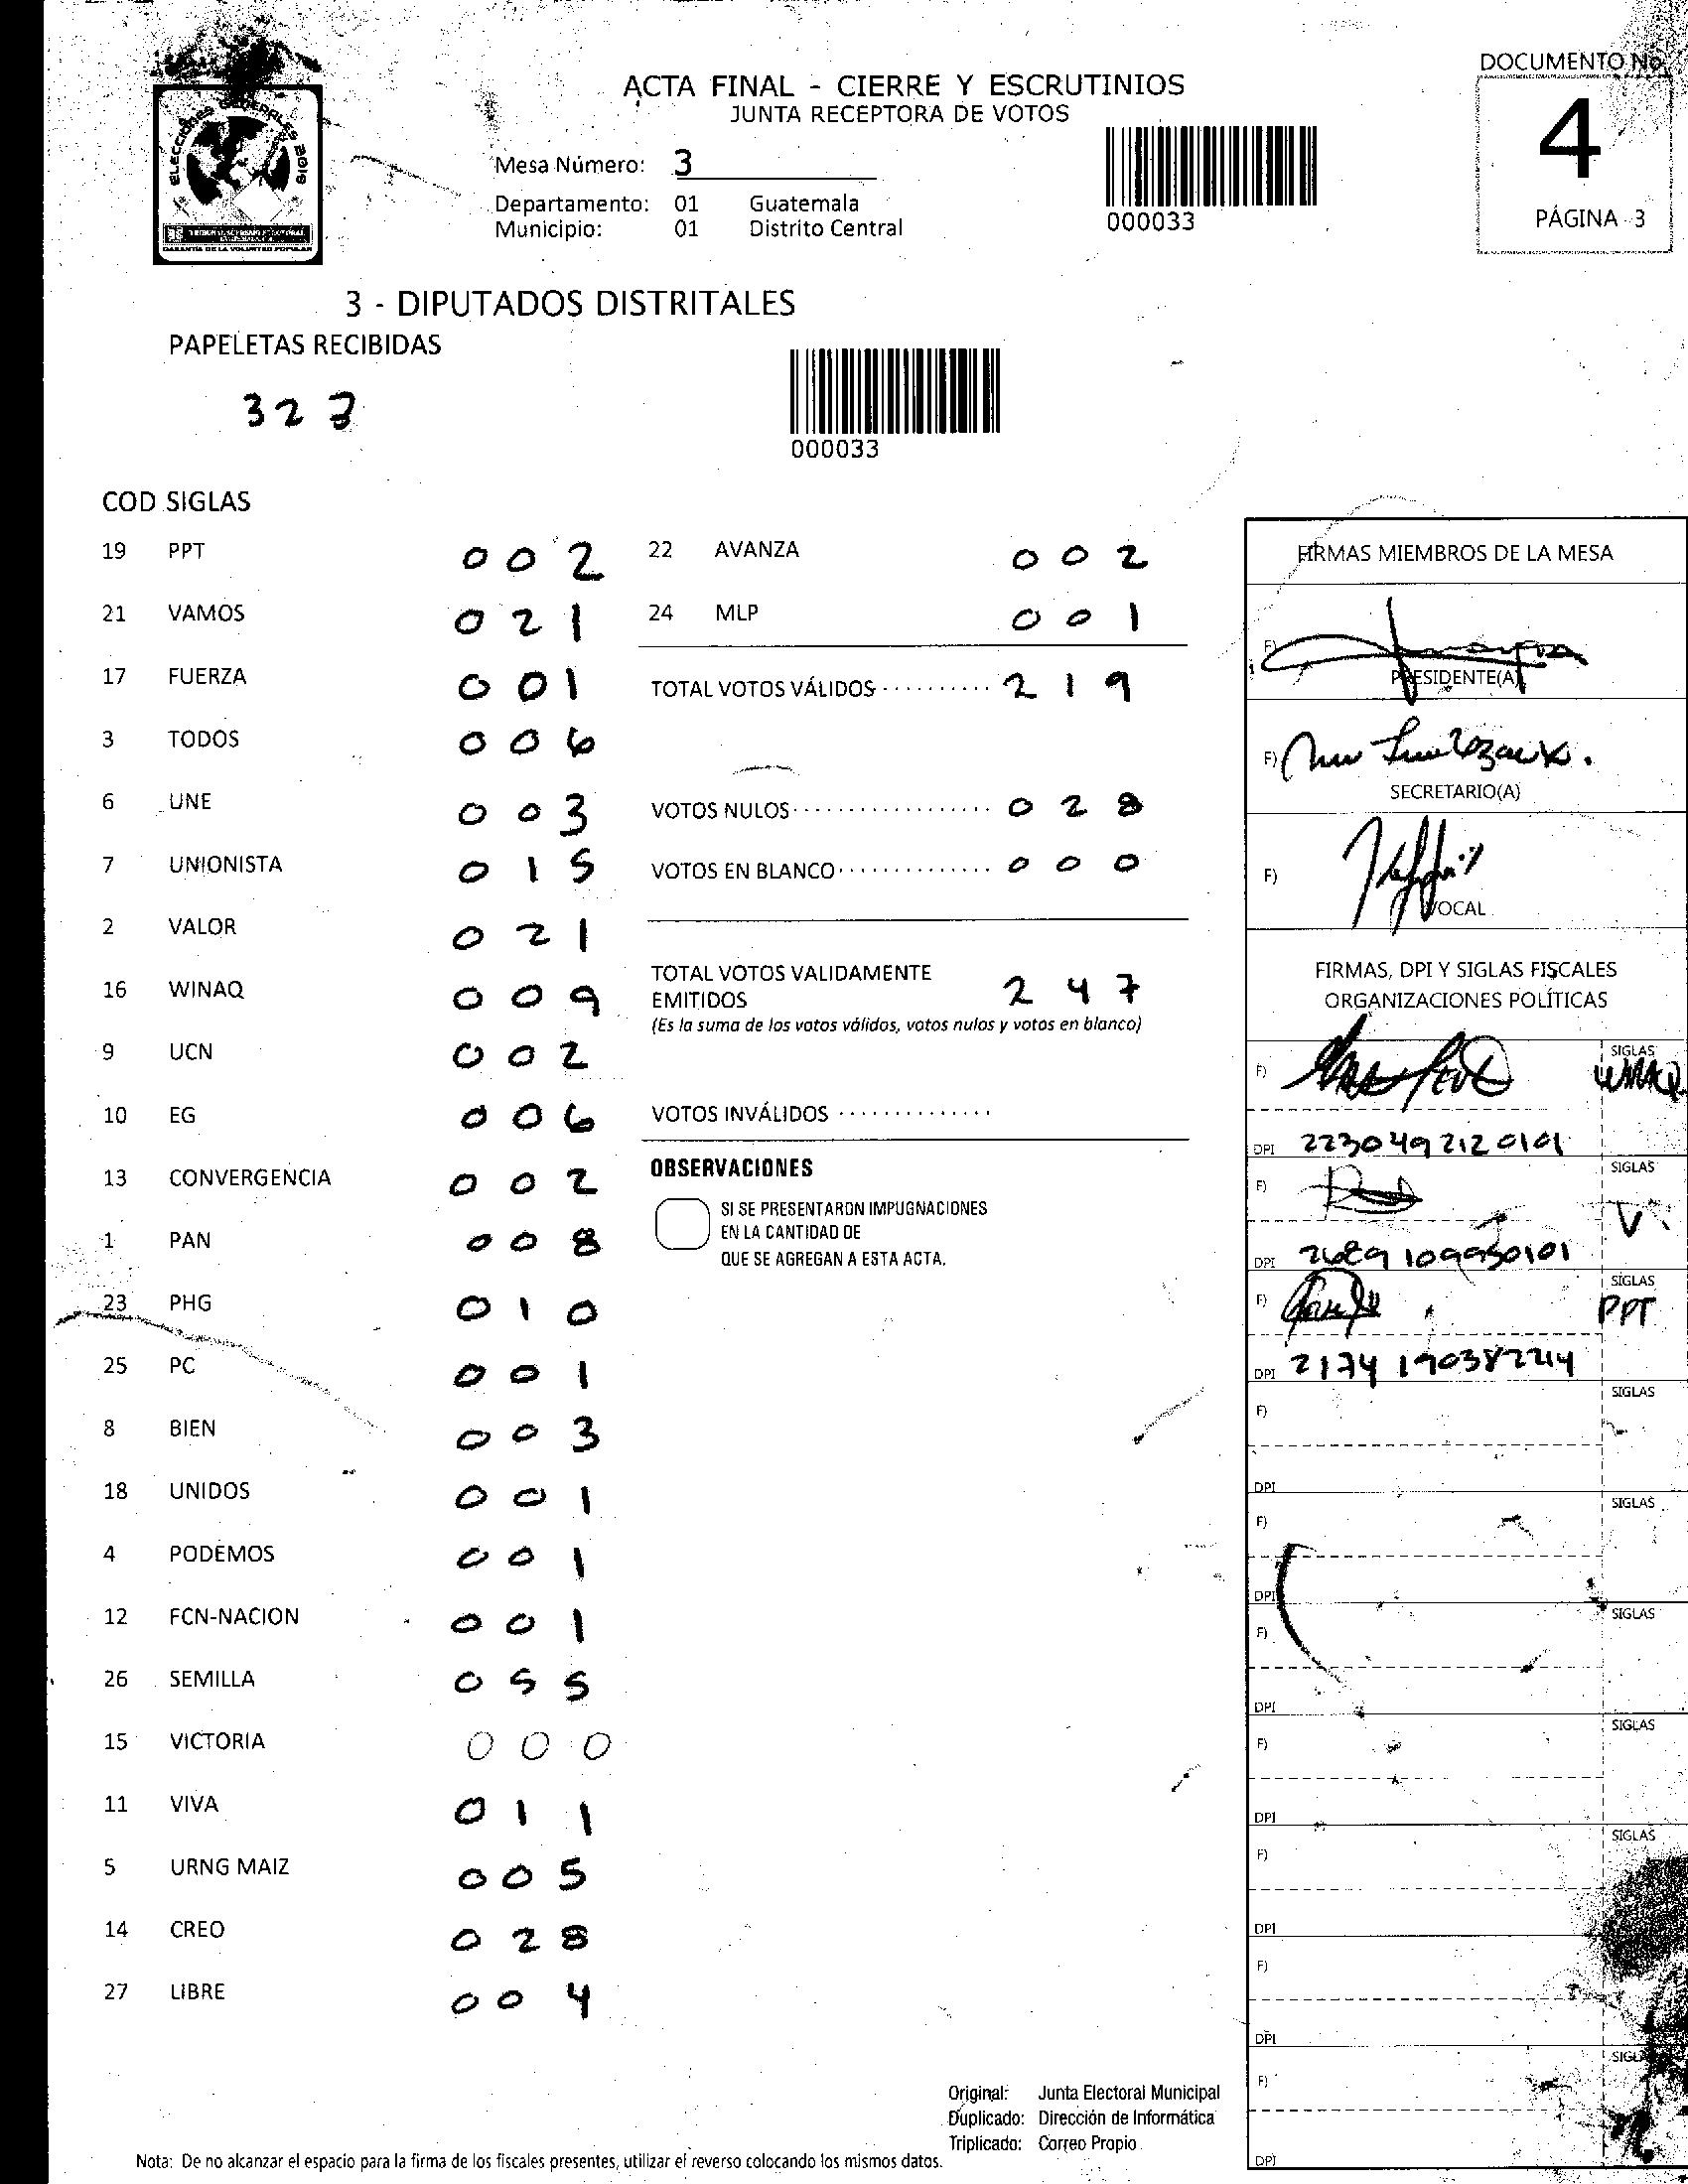 ACTA FINAL - CIERRE Y ESCRUTINIOS
JUNTA RECEPTORA DE VOTOS
DOCUMENTO No.
4
PÁGINA - 3
ELECCIONES GENERALES 2019
GARANTÍA DE LA VOLUNTAD POPULAR
Mesa Número: 3
Departamento: 01 Guatemala
Municipio: 01 Distrito Central
000033
3 - DIPUTADOS DISTRITALES
PAPELETAS RECIBIDAS
323
000033
COD SIGLAS
19 PPT 002
21 VAMOS 021
17 FUERZA 001
3 TODOS 006
6 UNE 003
7 UNIONISTA 015
2 VALOR 021
16 WINAQ 009
9 UCN 002
10 EG 006
13 CONVERGENCIA 002
1 PAN 008
23 PHG 010
25 PC 001
8 BIEN 003
18 UNIDOS 001
4 PODEMOS 001
12 FCN-NACION 001
26 SEMILLA 055
15 VICTORIA 000
11 VIVA 011
5 URNG MAIZ 005
14 CREO 028
27 LIBRE 004
22 AVANZA 002
24 MLP 001
TOTAL VOTOS VÁLIDOS 219
VOTOS NULOS 028
VOTOS EN BLANCO 000
TOTAL VOTOS VALIDAMENTE
EMITIDOS 247
(Es la suma de los votos válidos, votos nulos y votos en blanco)
VOTOS INVÁLIDOS
OBSERVACIONES
SI SE PRESENTARON IMPUGNACIONES
EN LA CANTIDAD DE
QUE SE AGREGAN A ESTA ACTA.
FIRMAS MIEMBROS DE LA MESA
F)
PRESIDENTE(A)
F)
SECRETARIO(A)
F)
VOCAL
FIRMAS, DPI Y SIGLAS FISCALES
ORGANIZACIONES POLÍTICAS
F) SIGLAS WINAQ
DPI 2230492120101
F) SIGLAS V
DPI
F) SIGLAS PPT
DPI
F) SIGLAS
DPI
F) SIGLAS
DPI
F) SIGLAS
DPI
F) SIGLAS
DPI
F) SIGLAS
DPI
F)
DPI
F) SIGLAS
DPI
Original: Junta Electoral Municipal
Duplicado: Dirección de Informática
Triplicado: Correo Propio
Nota: De no alcanzar el espacio para la firma de los fiscales presentes, utilizar el reverso colocando los mismos datos.